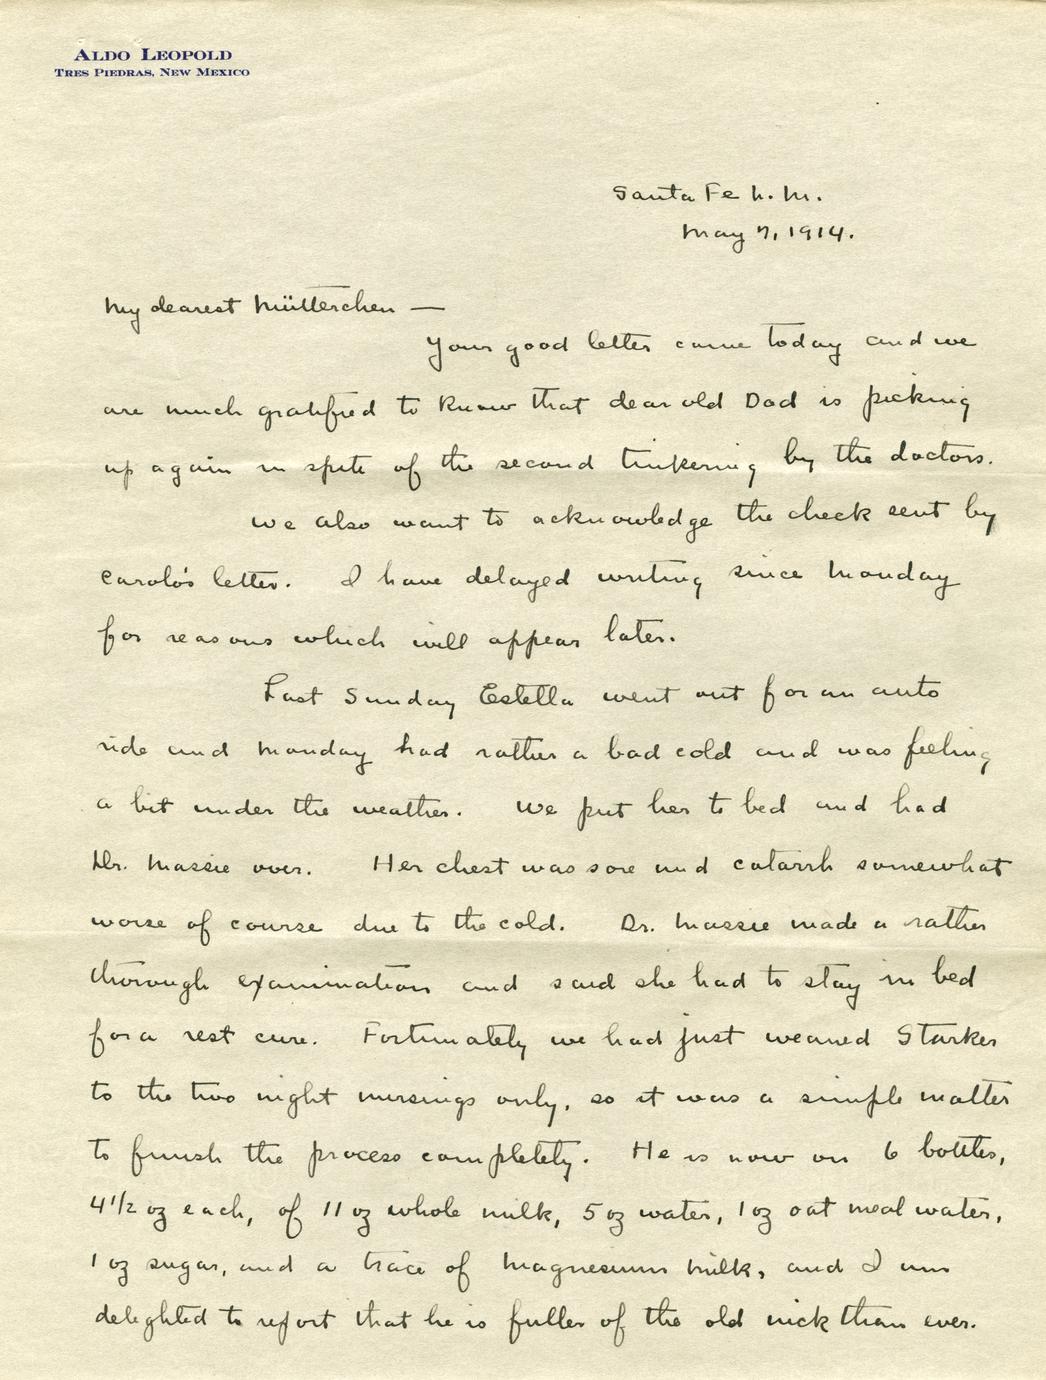 ALDO LEOPOLD
TRES PIEDRAS, NEW MEXICO
Santa Fe N. M.
May 7, 1914.
My dearest Mütterchen —
Your good letter came today and we
are much gratified to know that dear old Dad is picking
up again in spite of the second tinkering by the doctors.
We also want to acknowledge the check sent by
Carolo's letter. I have delayed writing since Monday
for reasons which will appear later.
Last Sunday Estella went out for an auto
ride and Monday had rather a bad cold and was feeling
a bit under the weather. We put her to bed and had
Dr. Massie over. Her chest was sore and catarrh somewhat
worse of course due to the cold. Dr. Massie made a rather
thorough examination and said she had to stay in bed
for a rest cure. Fortunately we had just weaned Starker
to the two night nursings only, so it was a simple matter
to finish the process completely. He is now on 6 bottles,
4 1/2 oz each, of 11 oz whole milk, 5 oz water, 1 oz oat meal water,
1 oz sugar, and a trace of magnesium milk, and I am
delighted to report that he is fuller of the old nick than ever.